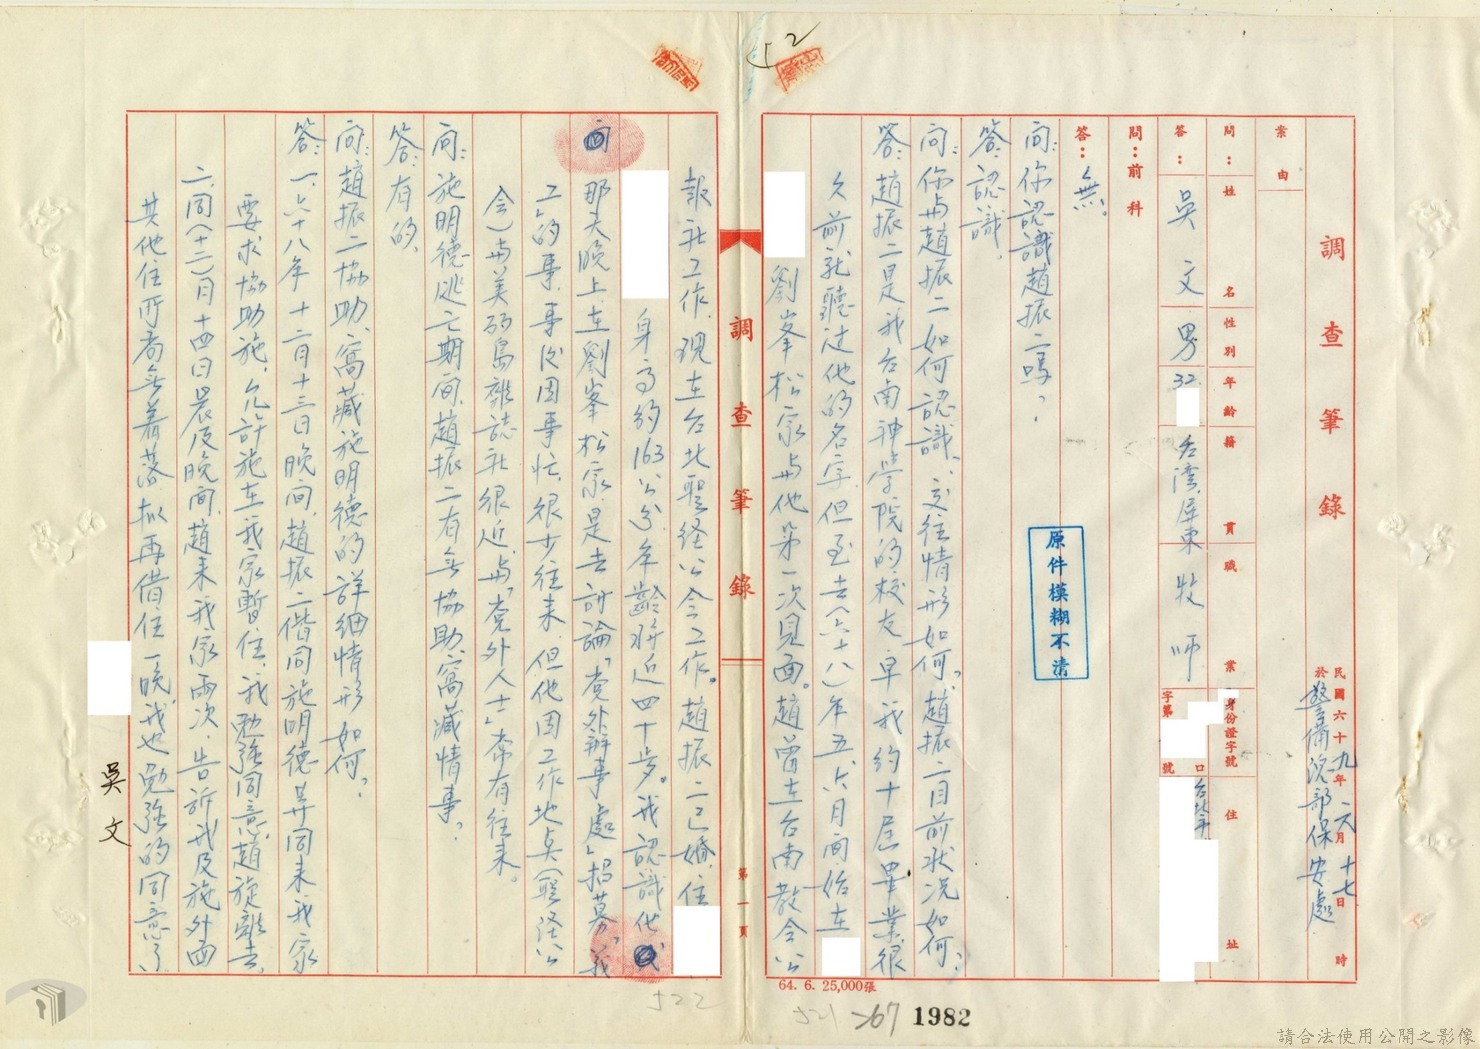 52
調查筆錄
民國六十九年六月十七日 時
於警備總部保安處
案由
問：姓名 性別 年齡 籍貫 職業 身份證字號 住址
答：吳文 男 32 台灣屏東 牧師 字第 號 口
問：前科
答：無。
問：你認識趙振二嗎？
答：認識。
問：你與趙振二如何認識、交往情形如何？趙振二目前狀況如何？
答：趙振二是我台南神學院的校友，早我約十屆畢業，很
久前就聽過他的名字，但至去（六十八）年五、六月間始在
劉峯松家與他第一次見面。趙曾在台南教會公
原件模糊不清
64. 6. 25,000張
521 267 1982
調查筆錄
第一頁
報社工作，現在台北聖経公会工作。趙振二已婚，住
身高約163公分，年齡將近四十歩。我認識他
那天晚上在劉峯松家，是去討論「党外辦事處」招募「義
工」的事，事後因事忙，很少往来，但他因工作地点（聖経公
会）与美麗島雜誌社很近，与「党外人士」常有往来。
問：施明德逃亡期间，趙振二有無協助、窩藏情事？
答：有的。
問：趙振二協助、窩藏施明德的詳細情形如何？
答：一、六十八年十二月十三日晚间，趙振二偕同施明德等同来我家
要求協助施，允許施在我家暫住，我勉強同意，趙旋離去。
二、同（十二）月十四日晨及晚间，趙来我家兩次，告訴我及施外面
其他住所尚無着落，拟再借住一晚，我也勉強的同意了。
吳文
522
請合法使用公開之影像